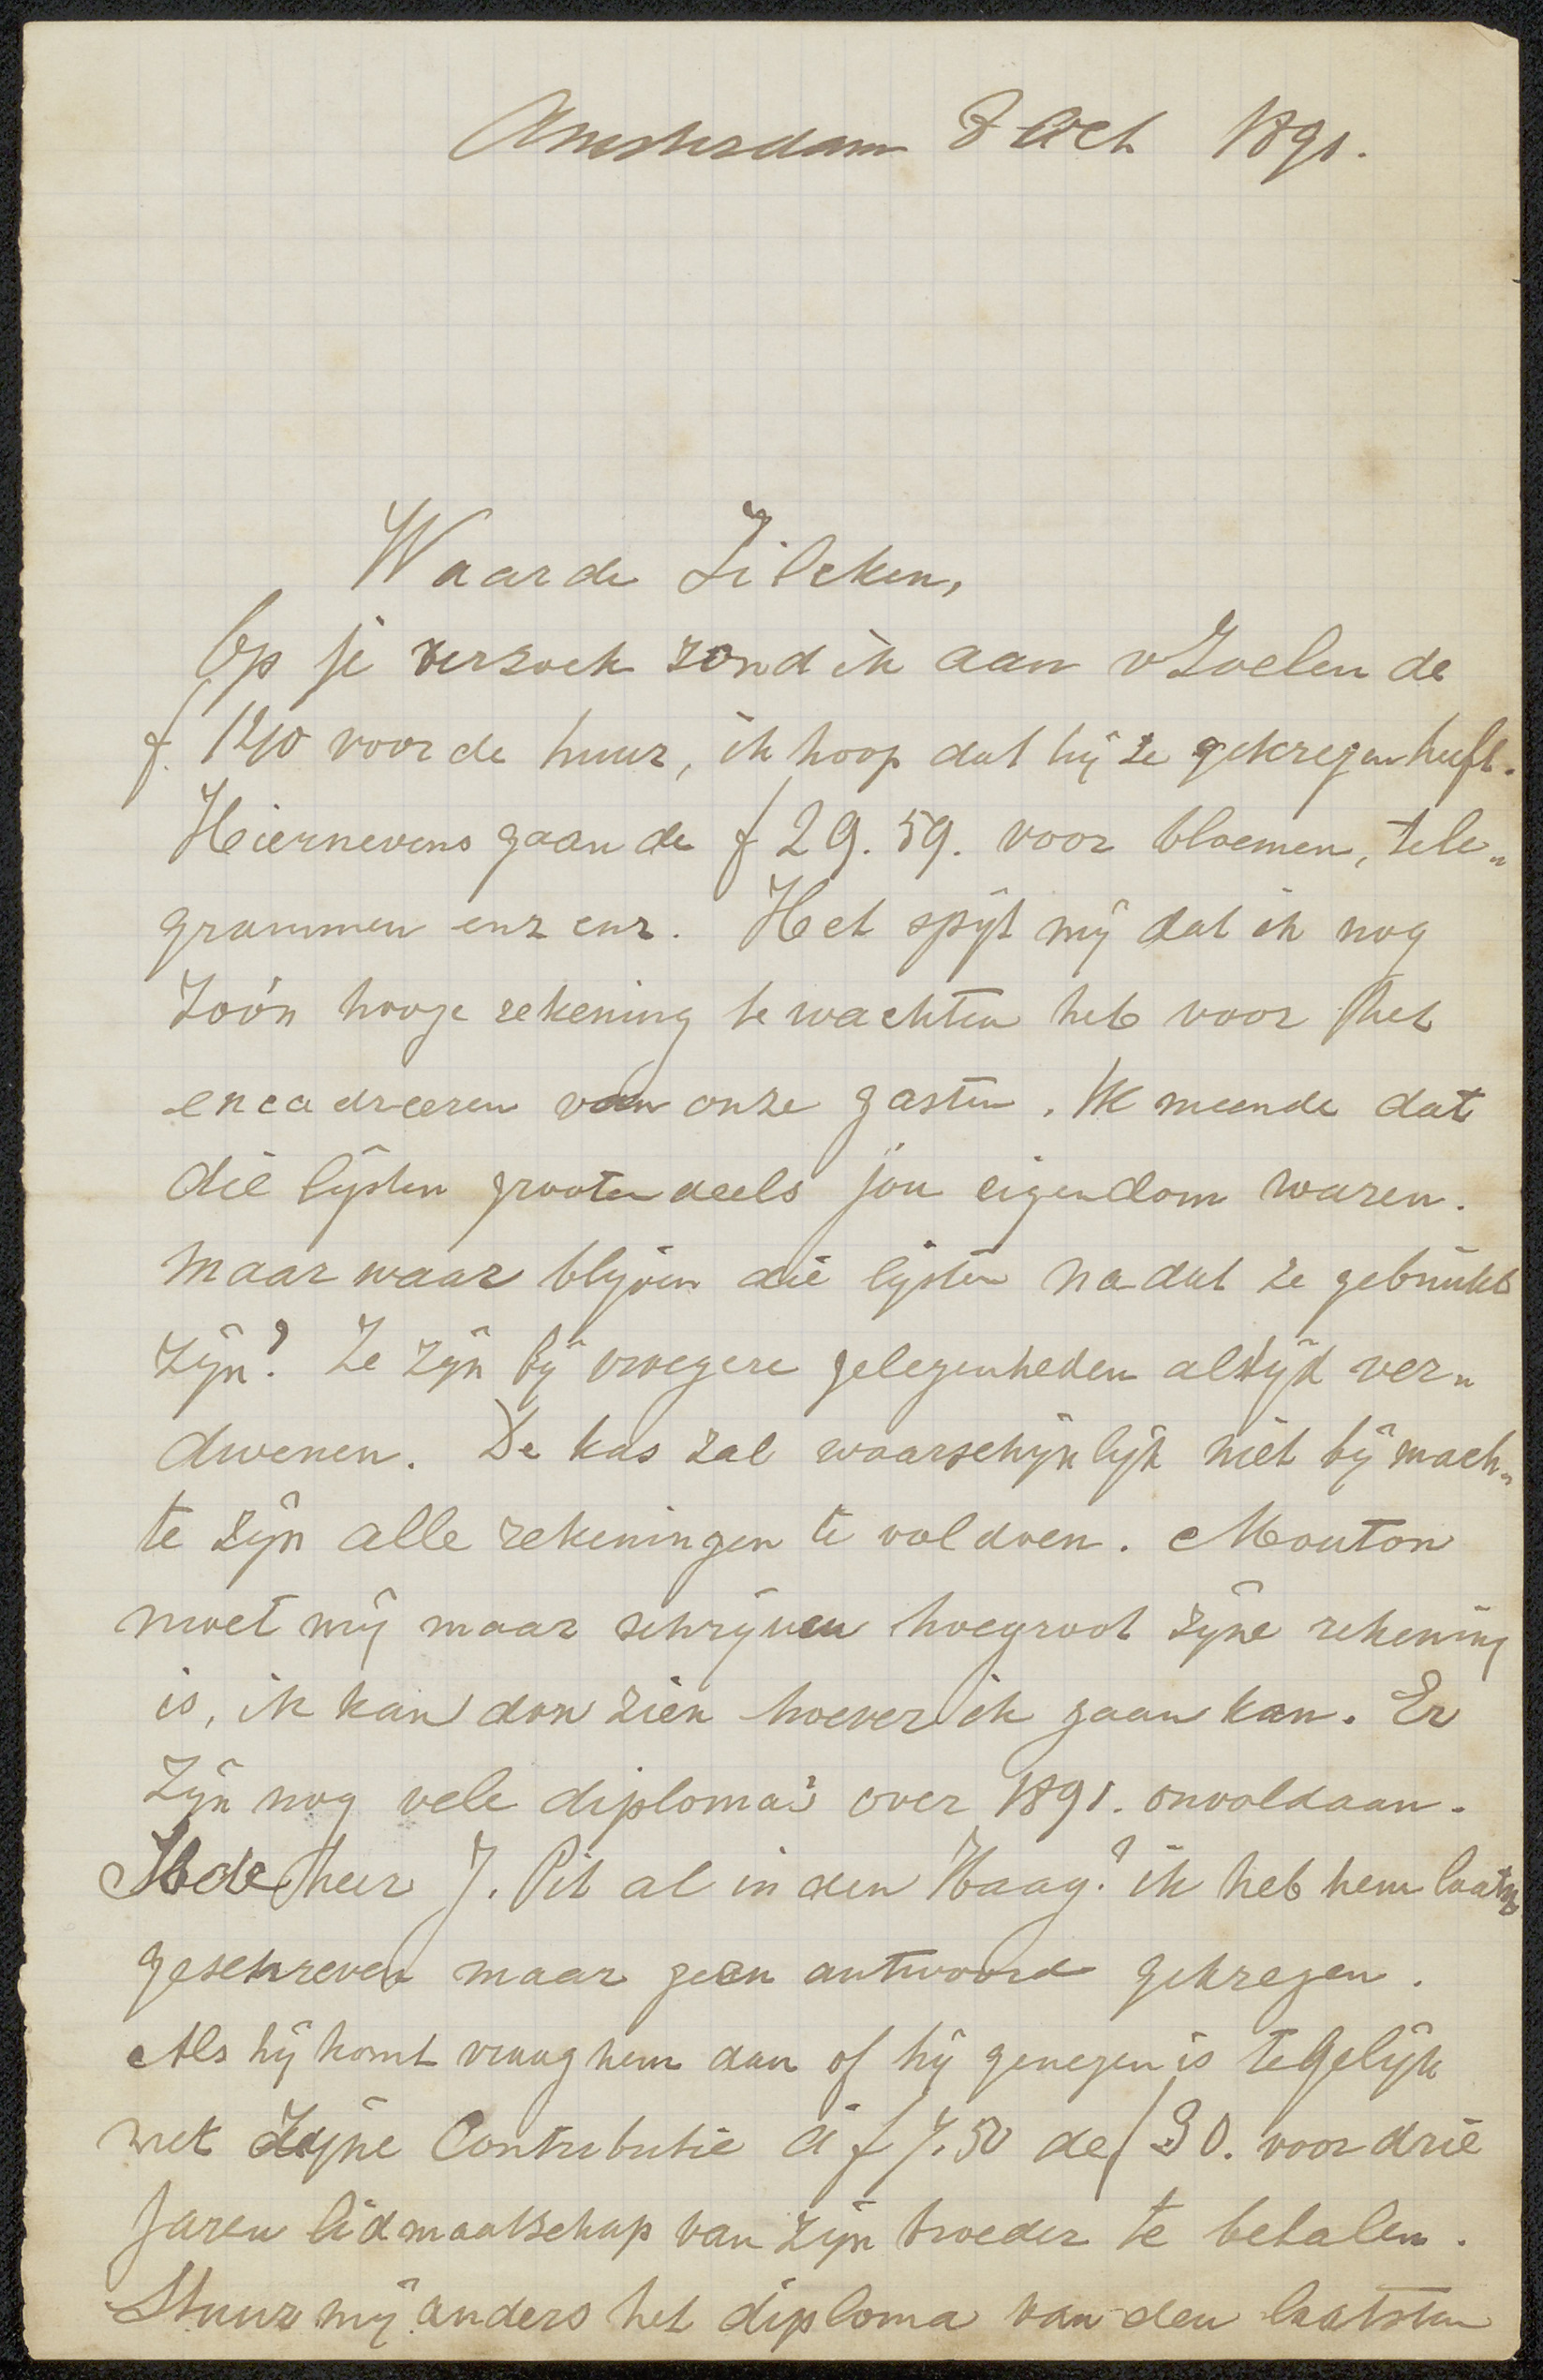 Amsterdam 7 Oct 1891.
Waarde Zilcken,
Op je verzoek zond ik aan v Zoelen de
f. 120 voor de huur, ik hoop dat hij ze gekregen heeft.
Hiernevens gaan de f 29.59. voor bloemen, tele„
grammen enz enz. Het spijt mij dat ik nog
zoo'n hooge rekening te wachten heb voor het
encadreeren van onze gasten. Ik meende dat
die lijsten grootendeels jou eigendom waren.
Maar waar blijven die lijsten nadat ze gebruikt
zijn? Ze zijn bij vroegere gelegenheden altijd ver„
dwenen. De kas zal waarschijnlijk niet bij mach„
te zijn alle rekeningen te voldoen. Mouton
moet mij maar schrijven hoegroot zijne rekening
is, ik kan dan zien hoever ik gaan kan. Er
zijn nog vele diploma's over 1891. onvoldaan.
Is de heer J. Pit al in den Haag? ik heb hem laatst
geschreven maar geen antwoord gekregen.
Als hij komt vraag hem dan of hij genegen is tegelijk
met zijne Contributie à f 7.50 de f 30. voor drie
Jaren lidmaatschap van zijn broeder te betalen.
Stuur mij anders het diploma van den laatsten